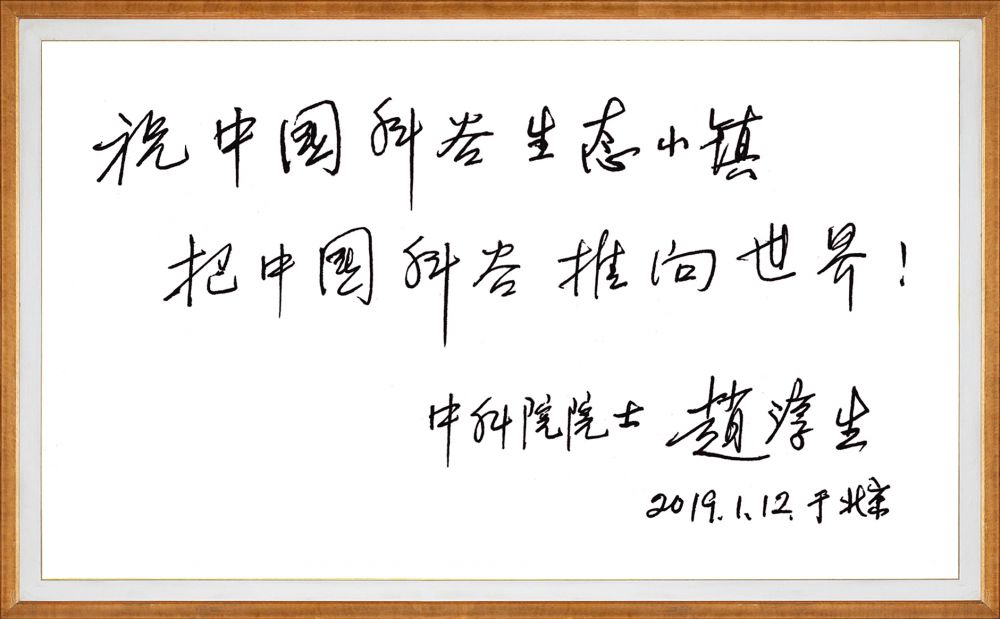 祝中国科谷生态小镇
把中国科谷推向世界！
中科院院士 趙淳生
2019.1.12.于北京